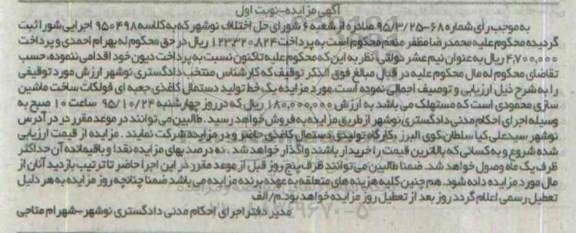 آگهی مزایده-نوبت اول
به موجب رأی شماره ۶۸-۹۵/۳/۲۵ صادره از شعبه ۶ شورای حل اختلاف نوشهر که به کلاسه ۹۵۰۴۹۸ اجرایی شورا ثبت
گردیده محکوم علیه محمدرضا مظفر منعم محکوم است به پرداخت ۱۲۳،۳۲۰،۸۲۴ ریال در حق محکوم له بهرام احمدی و پرداخت
۴،۷۰۰،۰۰۰ ریال به عنوان نیم عشر دولتی نظر به این که محکوم علیه تاکنون نسبت به پرداخت دیون خود اقدامی ننموده، حسب
تقاضای محکوم له مال محکوم علیه در قبال مبالغ فوق الذکر توقیف که کارشناس منتخب دادگستری نوشهر ارزش مورد توقیفی
را به شرح ذیل ارزیابی و توصیف اجمالی نموده است. مورد مزایده یک خط تولید دستمال کاغذی جعبه ای فولکات ساخت ماشین
سازی محمودی است که مستهلک می باشد به ارزش ۱۸۰،۰۰۰،۰۰۰ ریال که در روز چهارشنبه ۹۵/۱۰/۲۴ ساعت ۱۰ صبح به
وسیله اجرای احکام مدنی دادگستری نوشهر از طریق مزایده به فروش خواهد رسید. طالبین می توانند در موعد مقرر در در آدرس
نوشهر سیدعلی کیا سلطان کوی البرز کارگاه تولیدی دستمال کاغذی حاضر و در مزایده شرکت نمایند. مزایده از قیمت ارزیابی
شده شروع و به کسانی که بالاترین قیمت را خریدار باشند واگذار خواهد شد. ده درصد بهای مزایده نقدا و باقیمانده آن حداکثر
ظرف یک ماه وصول خواهد شد. ضمنا طالبین می توانند ظرف پنج روز قبل از موعد مقرر در این اجرا حاضر تا ترتیب بازدید آنان از
مال مورد مزایده داده شود. هم چنین کلیه هزینه های متعلقه به عهده برنده مزایده می باشد ضمنا چنانچه روز مزایده به هر دلیل
تعطیل رسمی اعلام گردد روز بعد از تعطیل روز مزایده خواهد بود. م/الف
مدیر دفتر اجرای احکام مدنی دادگستری نوشهر-شهرام متاجی